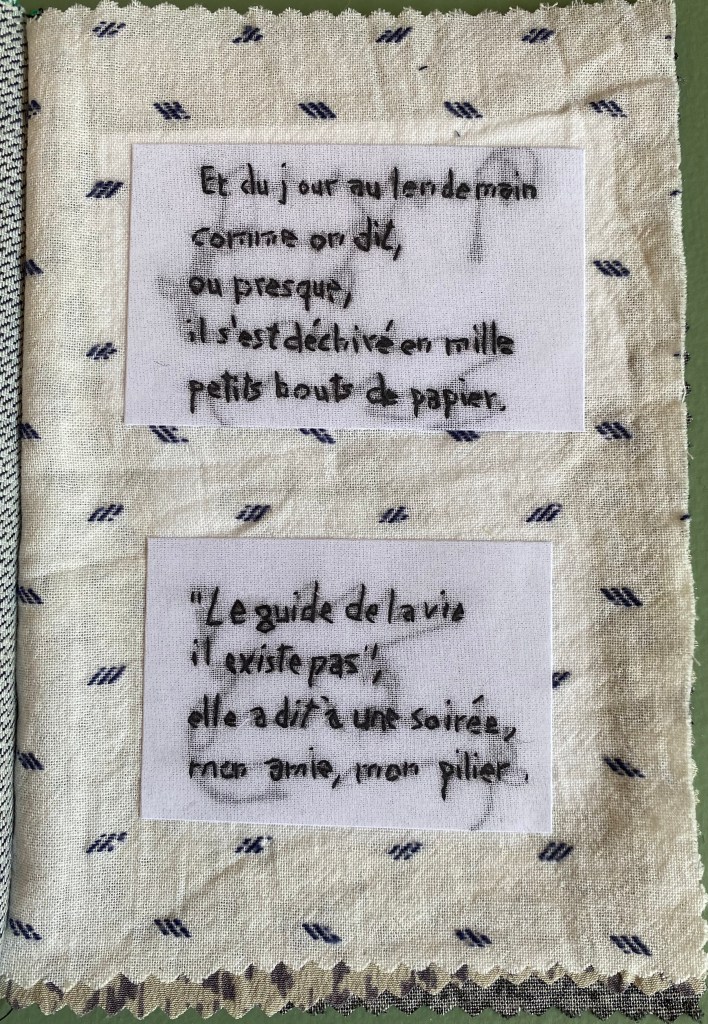 Et du jour au lendemain
comme on dit,
ou presque,
il s'est déchiré en mille
petits bouts de papier.
"Le guide de la vie
il existe pas",
elle a dit à une soirée,
mon amie, mon pilier.